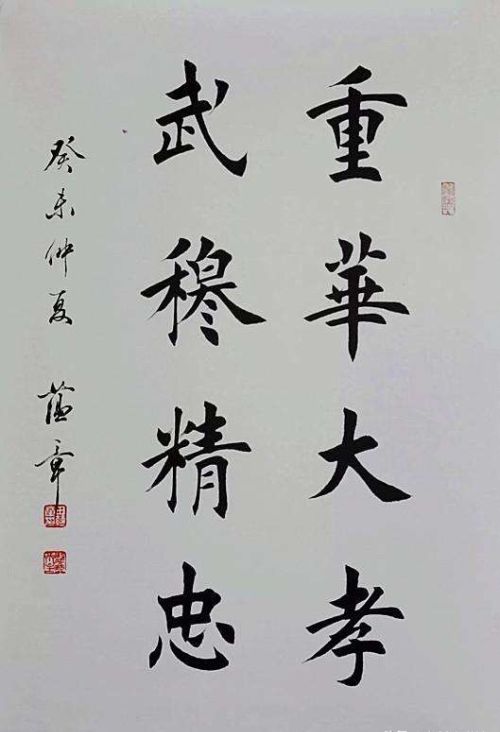 重華大孝
武穆精忠
癸未仲夏 蘊章